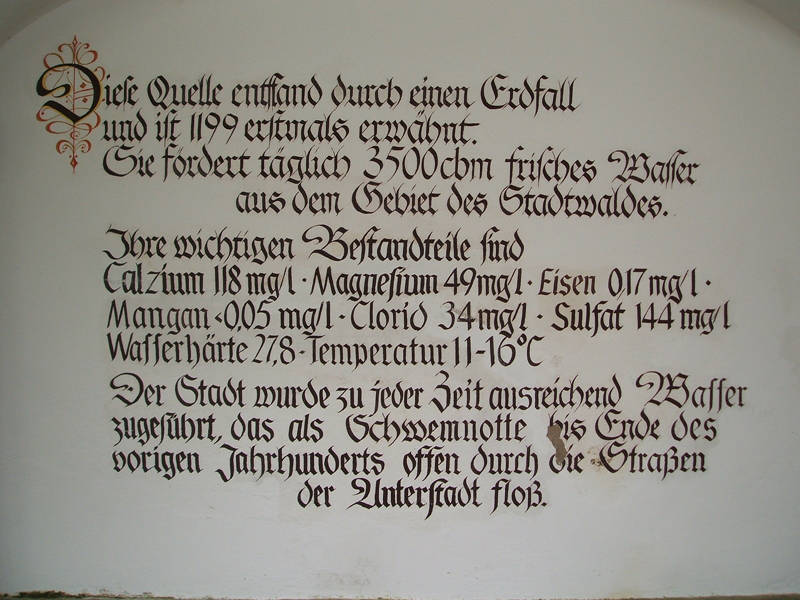 Diese Quelle entstand durch einen Erdfall
und ist 1199 erstmals erwähnt.
Sie fördert täglich 3500cbm frisches Wasser
aus dem Gebiet des Stadtwaldes.
Ihre wichtigen Bestandteile sind
Calzium 118 mg/l · Magnesium 49mg/l · Eisen 0,17 mg/l ·
Mangan <0,05 mg/l · Clorid 34mg/l · Sulfat 144 mg/l
Wasserhärte 27,8 · Temperatur 11-16°C
Der Stadt wurde zu jeder Zeit ausreichend Wasser
zugeführt, das als Schwemnotte bis Ende des
vorigen Jahrhunderts offen durch die Straßen
der Unterstadt floß.